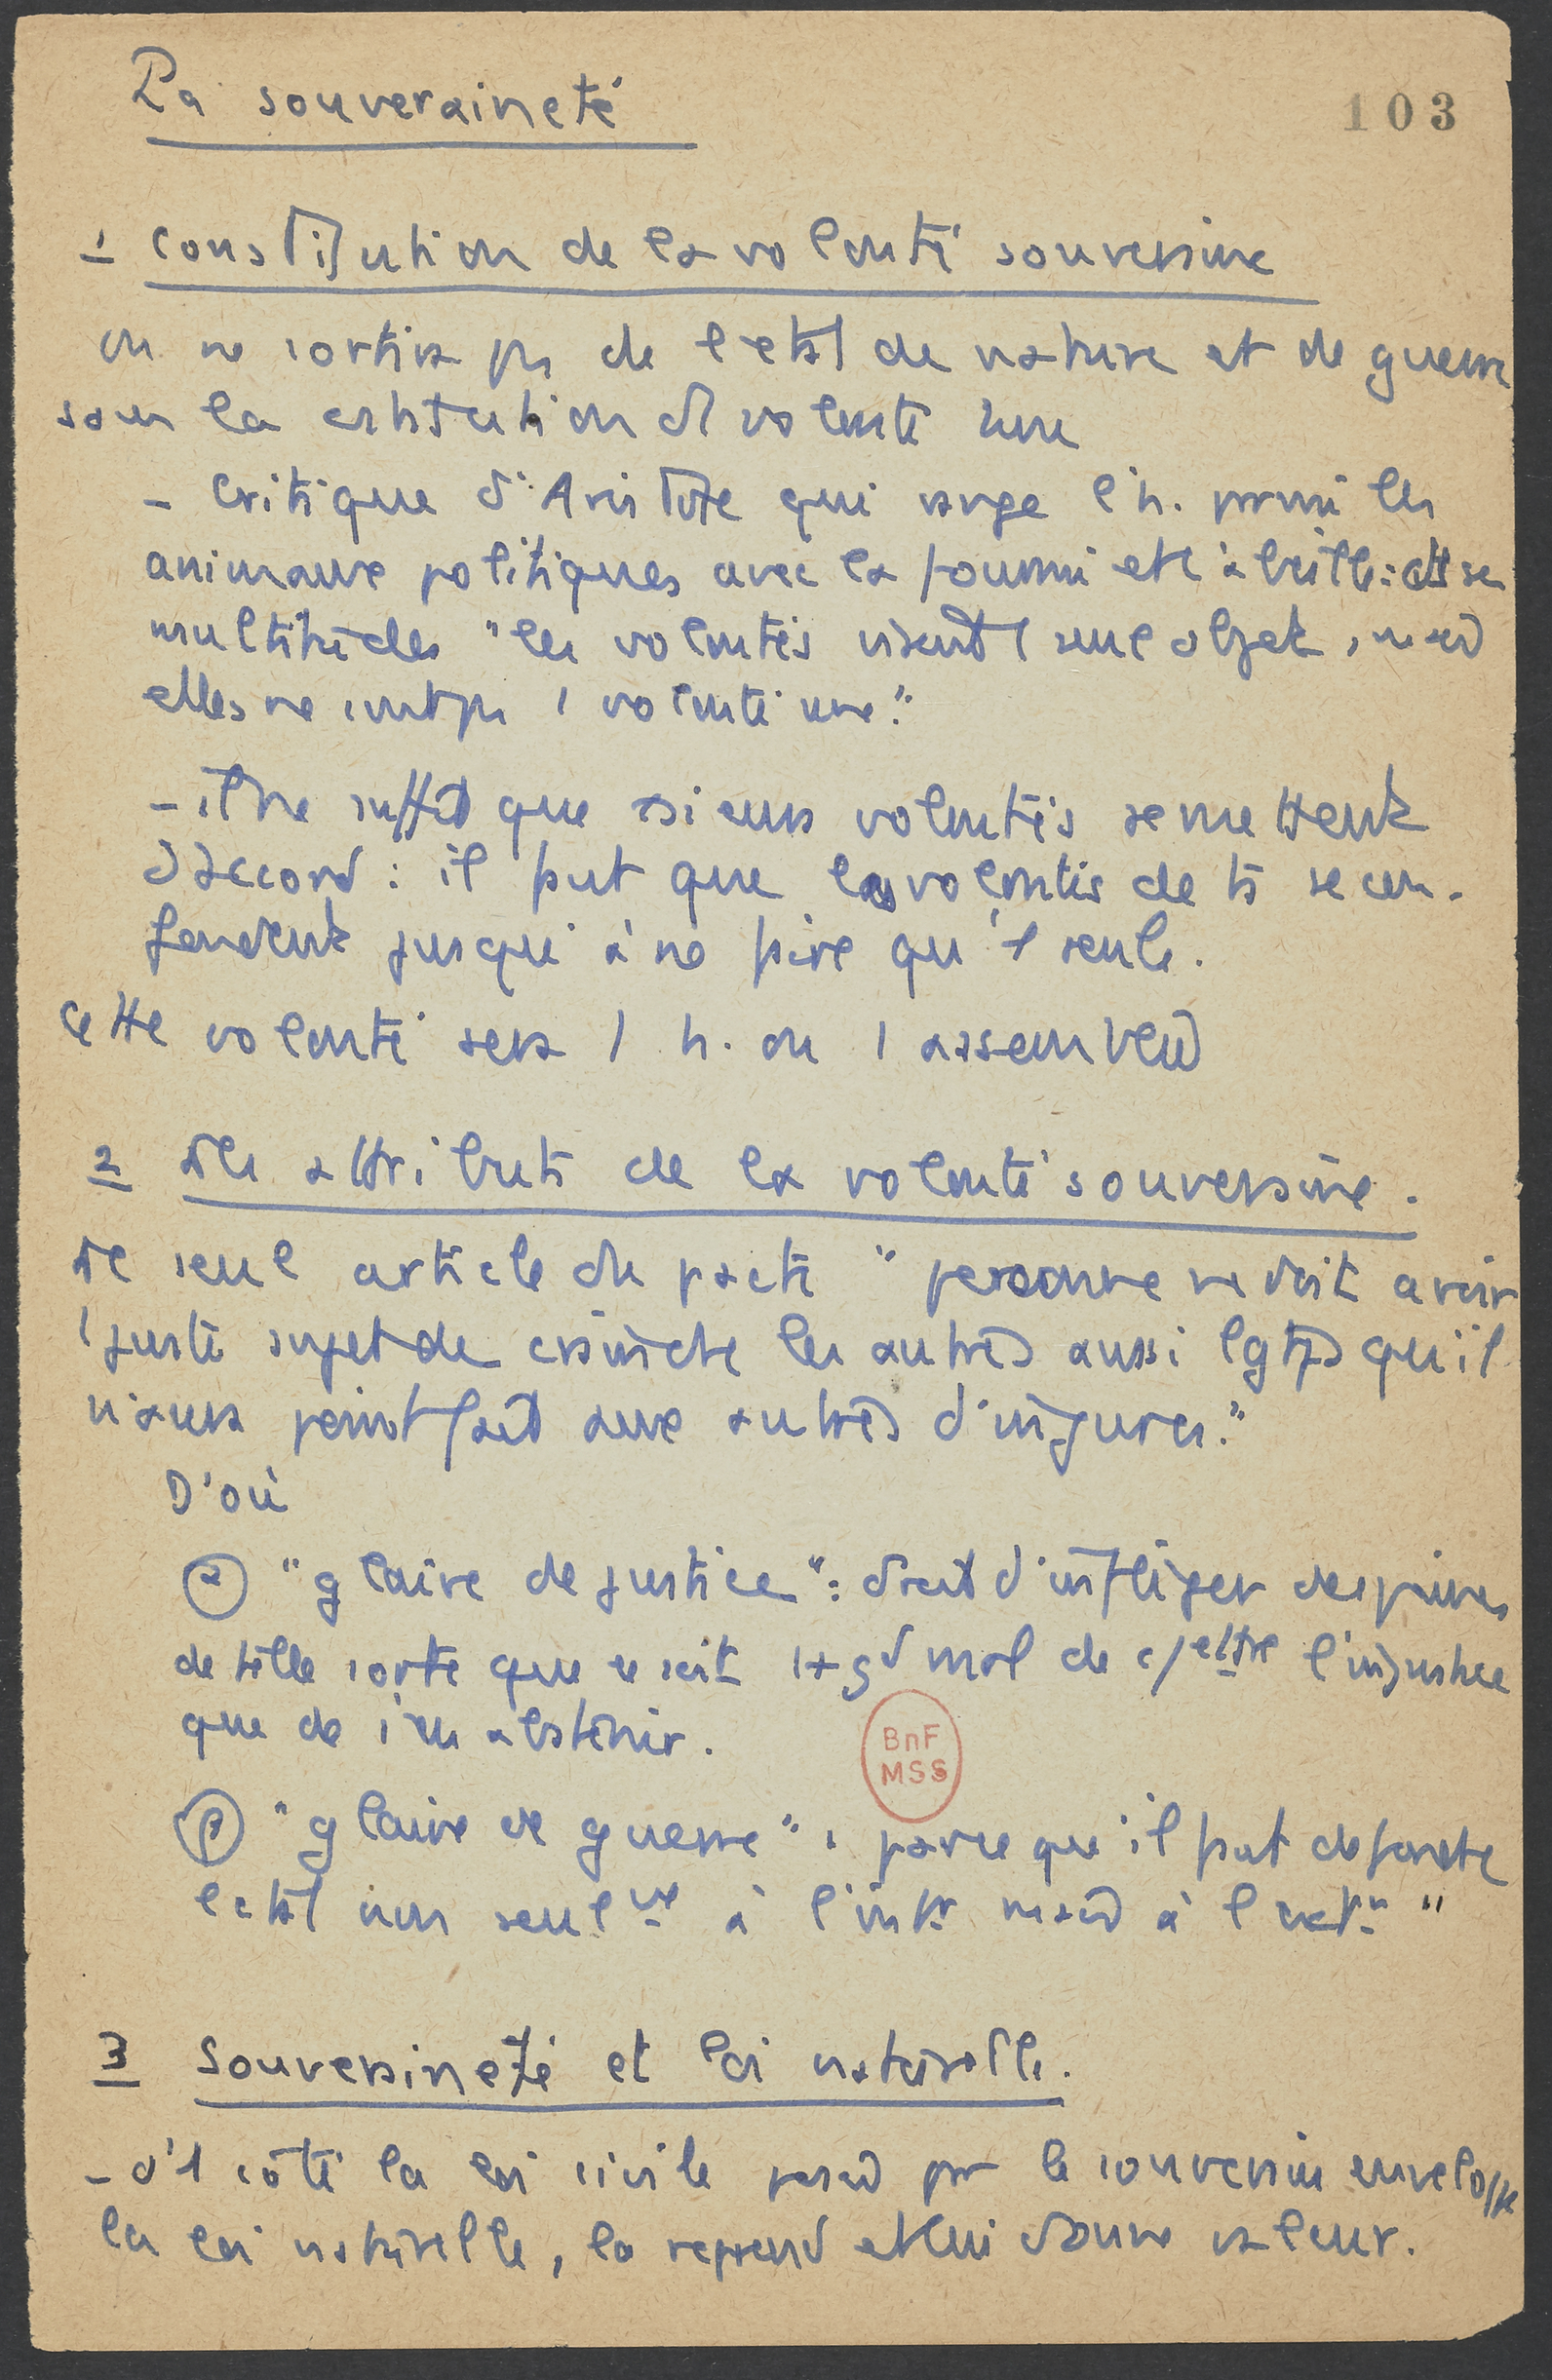 La souveraineté
103
1 constitution de la volonté souveraine
on ne sortira pas de l'état de nature et de guerre
sans la constitution d'1 volonté une
- critique d'Aristote qui range l'h. parmi les
animaux politiques avec la fourmi et l'abeille : ds ces
multitudes "les volontés visent 1 seul objet, mais
elles ne sont pas 1 volonté une."
- il ne suffit que plusieurs volontés se mettent
d'accord : il faut que les volontés de ts se con-
fondent jusqu'à ne faire qu'1 seule.
Cette volonté sera 1 h. ou 1 assemblée
2 Les attributs de la volonté souveraine.
Le seul article du pacte "personne ne doit avoir
1 juste sujet de craindre les autres aussi lgtps qu'il
n'aura point fait aux autres d'injures."
D'où
α "glaive de justice" : droit d'infliger des peines
de telle sorte que ce soit 1 + gd mal de c/ettre l'injustice
que de s'en abstenir.
β "glaive de guerre", parce qu'il faut défendre
l'état non seulnt à l'intr mais à l'extr "
3 Souveraineté et loi naturelle.
- d'1 côté la loi civile posée par le souverain enveloppe
la loi naturelle, la reprend et lui donne valeur.
BnF
MSS